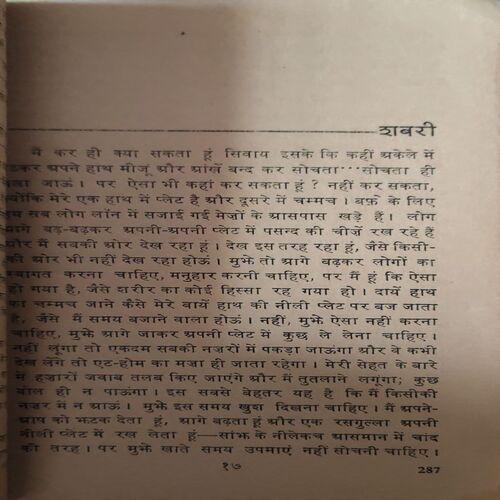 शबरी
मैं कर ही क्या सकता हूं सिवाय इसके कि कहीं अकेले में
अपने हाथ मींजूं और आंखें बन्द कर सोचता····सोचता ही
जाऊं। पर ऐसा भी कहां कर सकता हूं? नहीं कर सकता,
क्योंकि मेरे एक हाथ में प्लेट है और दूसरे में चम्मच। बर्फ़ के लिए
सब लोग लॉन में सजाई गई मेज़ों के आसपास खड़े हैं। लोग
आगे बढ़-बढ़कर अपनी-अपनी प्लेट में पसन्द की चीज़ें रख रहे हैं
और मैं सबकी ओर देख रहा हूं। देख इस तरह रहा हूं, जैसे किसी-
की ओर भी नहीं देख रहा होऊं। मुझे तो आगे बढ़कर लोगों का
स्वागत करना चाहिए, मनुहार करनी चाहिए, पर मैं हूं कि ऐसा
हो गया है, जैसे शरीर का कोई हिस्सा रह गया हो। दायें हाथ
का चम्मच जाने कैसे मेरे बायें हाथ की नीली प्लेट पर बज जाता
है, जैसे मैं समय बजाने वाला होऊं। नहीं, मुझे ऐसा नहीं करना
चाहिए, मुझे आगे जाकर अपनी प्लेट में कुछ ले लेना चाहिए।
नहीं लूंगा तो एकदम सबकी नज़रों में पकड़ा जाऊंगा और वे कभी
देख लेंगे तो एट-होम का मज़ा ही जाता रहेगा। मेरी सेहत के बारे
में हज़ारों जवाब तलब किए जाएंगे और मैं तुतलाने लगूंगा; कुछ
बोल ही न पाऊंगा। इस सबसे बेहतर यह है कि मैं किसीकी
नज़र में न आऊं। मुझे इस समय खुश दिखना चाहिए। मैं अपने-
आपको झटक देता हूं, आगे बढ़ता हूं और एक रसगुल्ला अपनी
नीली प्लेट में रख लेता हूं—सांझ के नीलेकच आसमान में चांद
की तरह। पर मुझे खाते समय उपमाएं नहीं सोचनी चाहिए।
१७
287